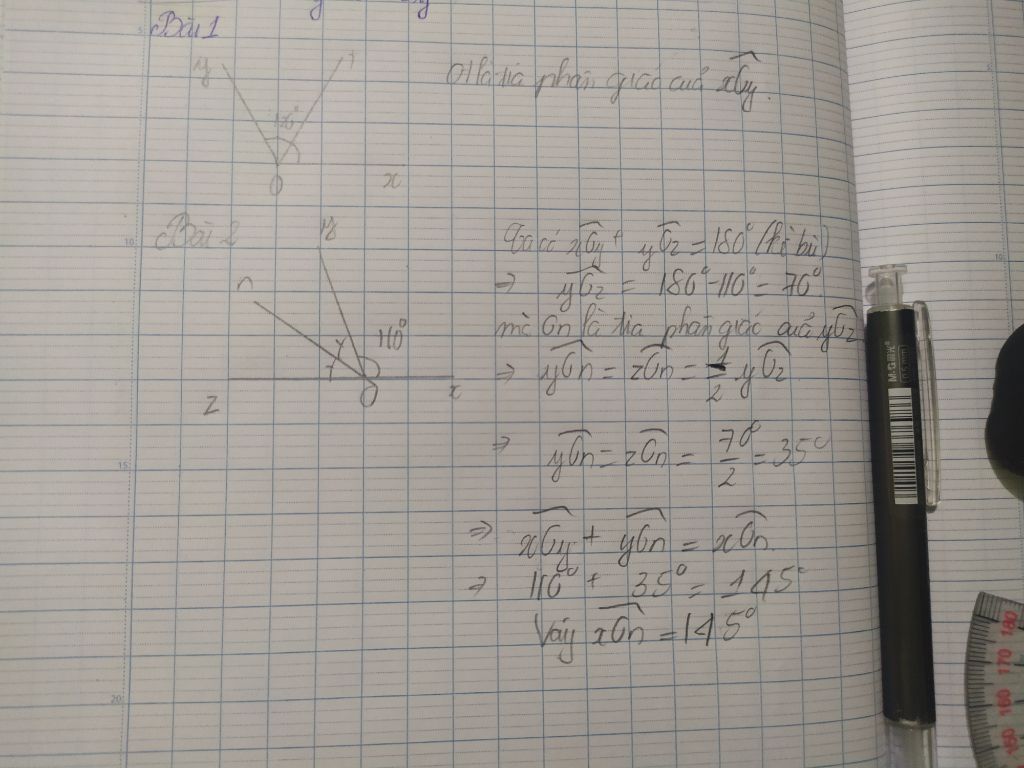 Bài 1
y
t
O
x
Ot là tia phân giác của xOy.
Bài 2
n
110°
z
O
x
Ta có xOy + yOz = 180° (kề bù)
→ yOz = 180° - 110° = 70°
mà On là tia phân giác của yOz
→ yOn = zOn = 1/2 yOz
⇒ yOn = zOn = 70°/2 = 35°
⇒ xOy + yOn = xOn
→ 110° + 35° = 145°
Vậy xOn = 145°
5
10
15
20
10
180
170
160
150